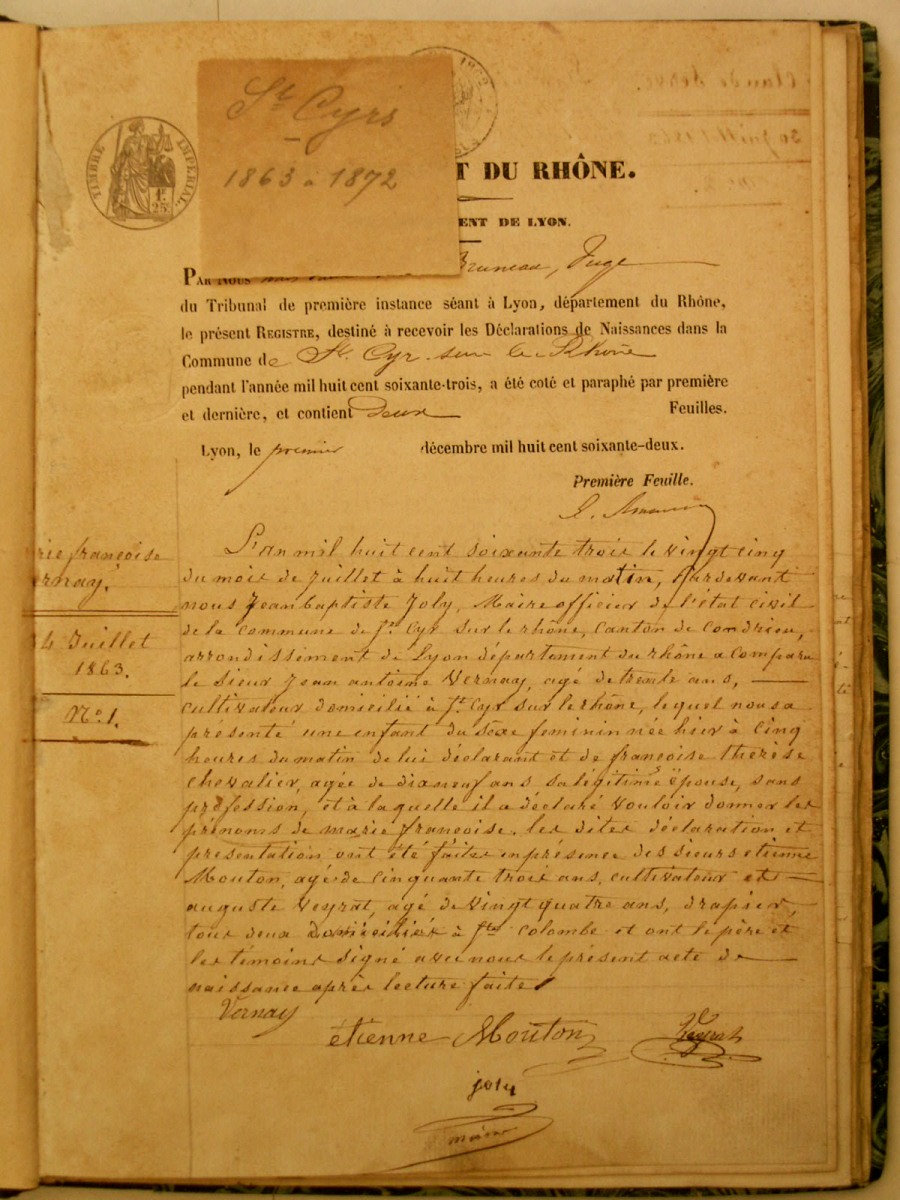 St Cyrs
1863 a 1872
TIMBRE IMPERIAL
1F.
25c
T DU RHÔNE.
ENT DE LYON.
PAR NOUS Bruneau, Juge
du Tribunal de première instance séant à Lyon, département du Rhône,
le présent REGISTRE, destiné à recevoir les Déclarations de Naissances dans la
Commune de St. Cyr sur le Rhône
pendant l'année mil huit cent soixante-trois, a été coté et paraphé par première
et dernière, et contient Deux Feuilles.
Lyon, le premier décembre mil huit cent soixante-deux.
Première Feuille.
rie francoise
ernay.
24 Juillet
1863.
N° 1.
L'an mil huit cent soixante trois le vingt cinq
du mois de Juillet à huit heures du matin, Pardevant
nous Jean baptiste Joly, Maire officier de l'état civil
de la commune de St. Cyr sur le rhône, canton de condrieu,
arrondissement de Lyon département du rhône a comparu
le sieur Jean antoine Vernay, agé de trente ans,
cultivateur domicilié à St. Cyr sur le rhône, lequel nous a
présenté une enfant du sexe feminin née hier à cinq
heures du matin de lui déclarant et de francoise therèse
chevalier, agée de dixneuf ans sa légitime épouse, sans
profession, et à laquelle il a déclaré vouloir donner les
prénoms de marie francoise. les dites déclaration et
presentation ont été faites en présence des sieurs etienne
Mouton, agé de cinquante trois ans, cultivateur et
auguste Veyrat, agé de vingt quatre ans, drapier,
tous deux domiciliés à Ste colombe et ont le père et
les témoins signé avec nous le présent acte de
naissance après lecture faite
Vernay
étienne Mouton Veyrat
joly
maire